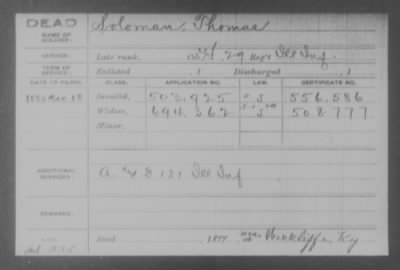 DEAD
Soloman, Thomas
NAME OF SOLDIER:
SERVICE: Late rank, Co. H, 29 Reg't Ill Inf
TERM OF SERVICE: Enlisted , 1 Discharged , 1
DATE OF FILING. CLASS. APPLICATION NO. LAW. CERTIFICATE NO.
Invalid, 503,925 J 556,586
Widow, 694,362 J 508,777
Minor,
ADDITIONAL SERVICES: A & D 131 Ill Inf
REMARKS:
Died , 1899, near at Wickliffe, Ky